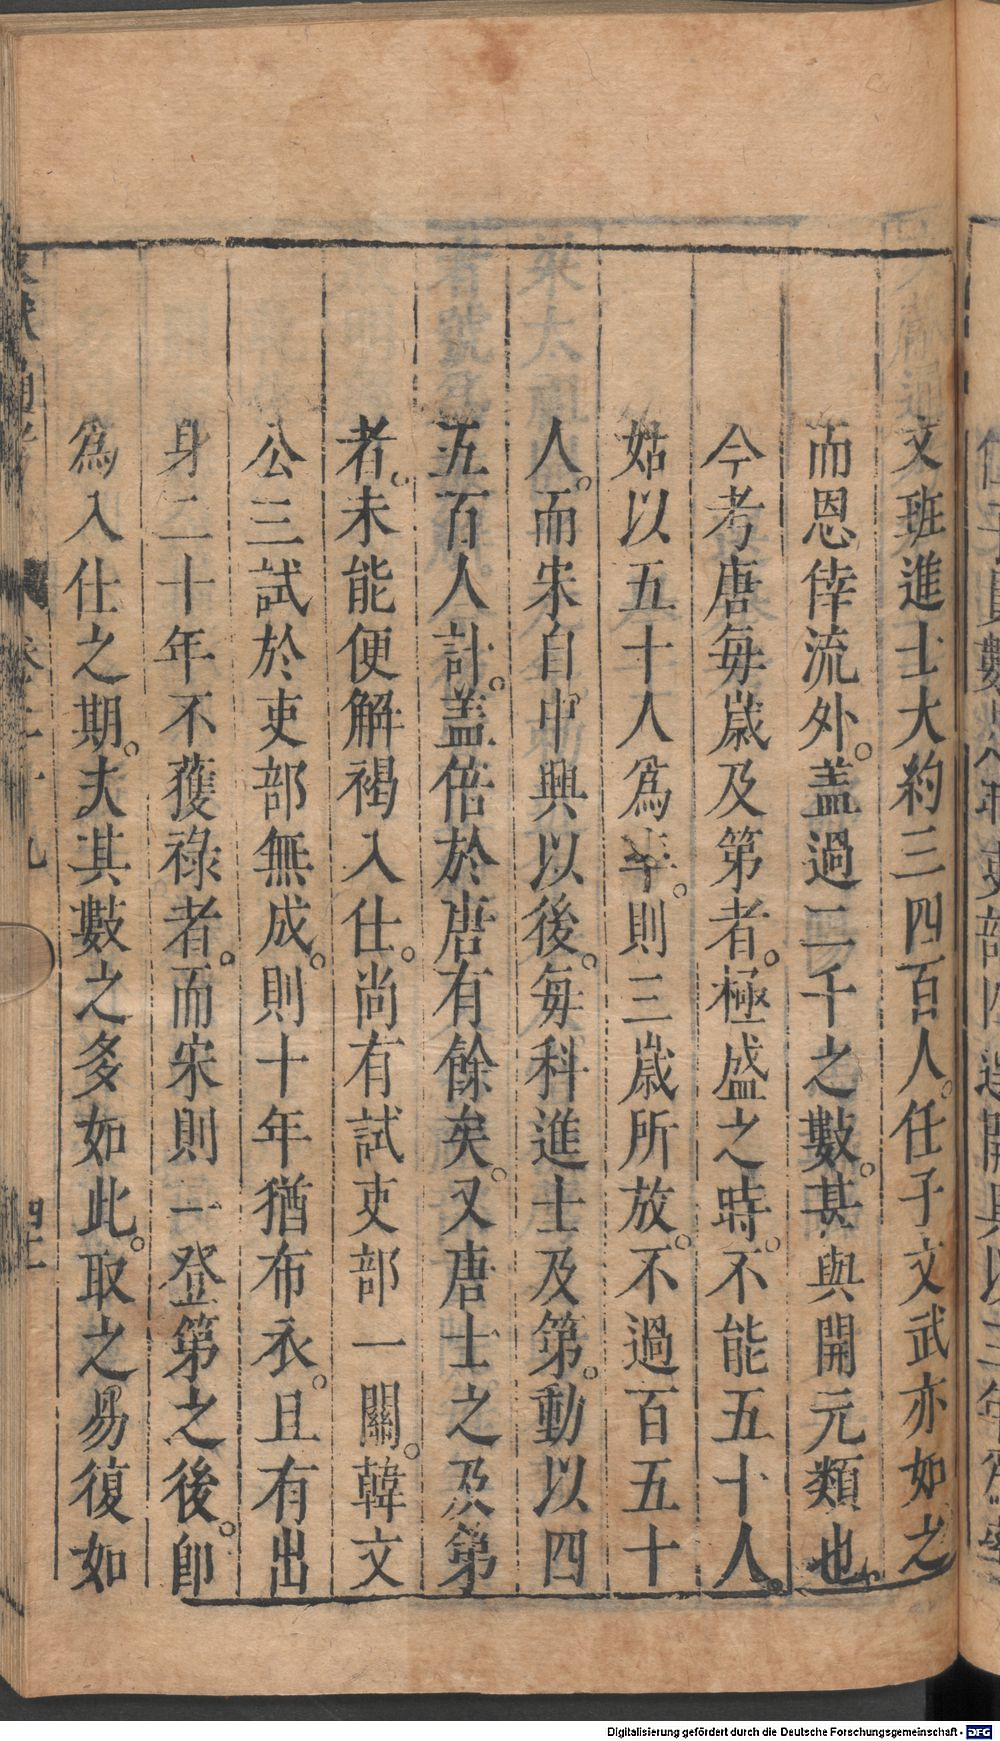 文班進士大約三四百人。任子文武亦如之
而恩倖流外。蓋過二千之數。甚與開元類也。
今考唐每歲及第者。極盛之時。不能五十人。
姑以五十人爲率。則三歲所放。不過百五十
人。而宋自中興以後。每科進士及第。動以四
五百人計。蓋倍於唐有餘矣。又唐士之及第
者。未能便解褐入仕。尚有試吏部一關。韓文
公三試於吏部無成。則十年猶布衣。且有出
身二十年不獲祿者。而宋則一登第之後。卽
爲入仕之期。夫其數之多如此。取之易復如
通考
卷二十九
四十
Digitalisierung gefördert durch die Deutsche Forschungsgemeinschaft - DFG